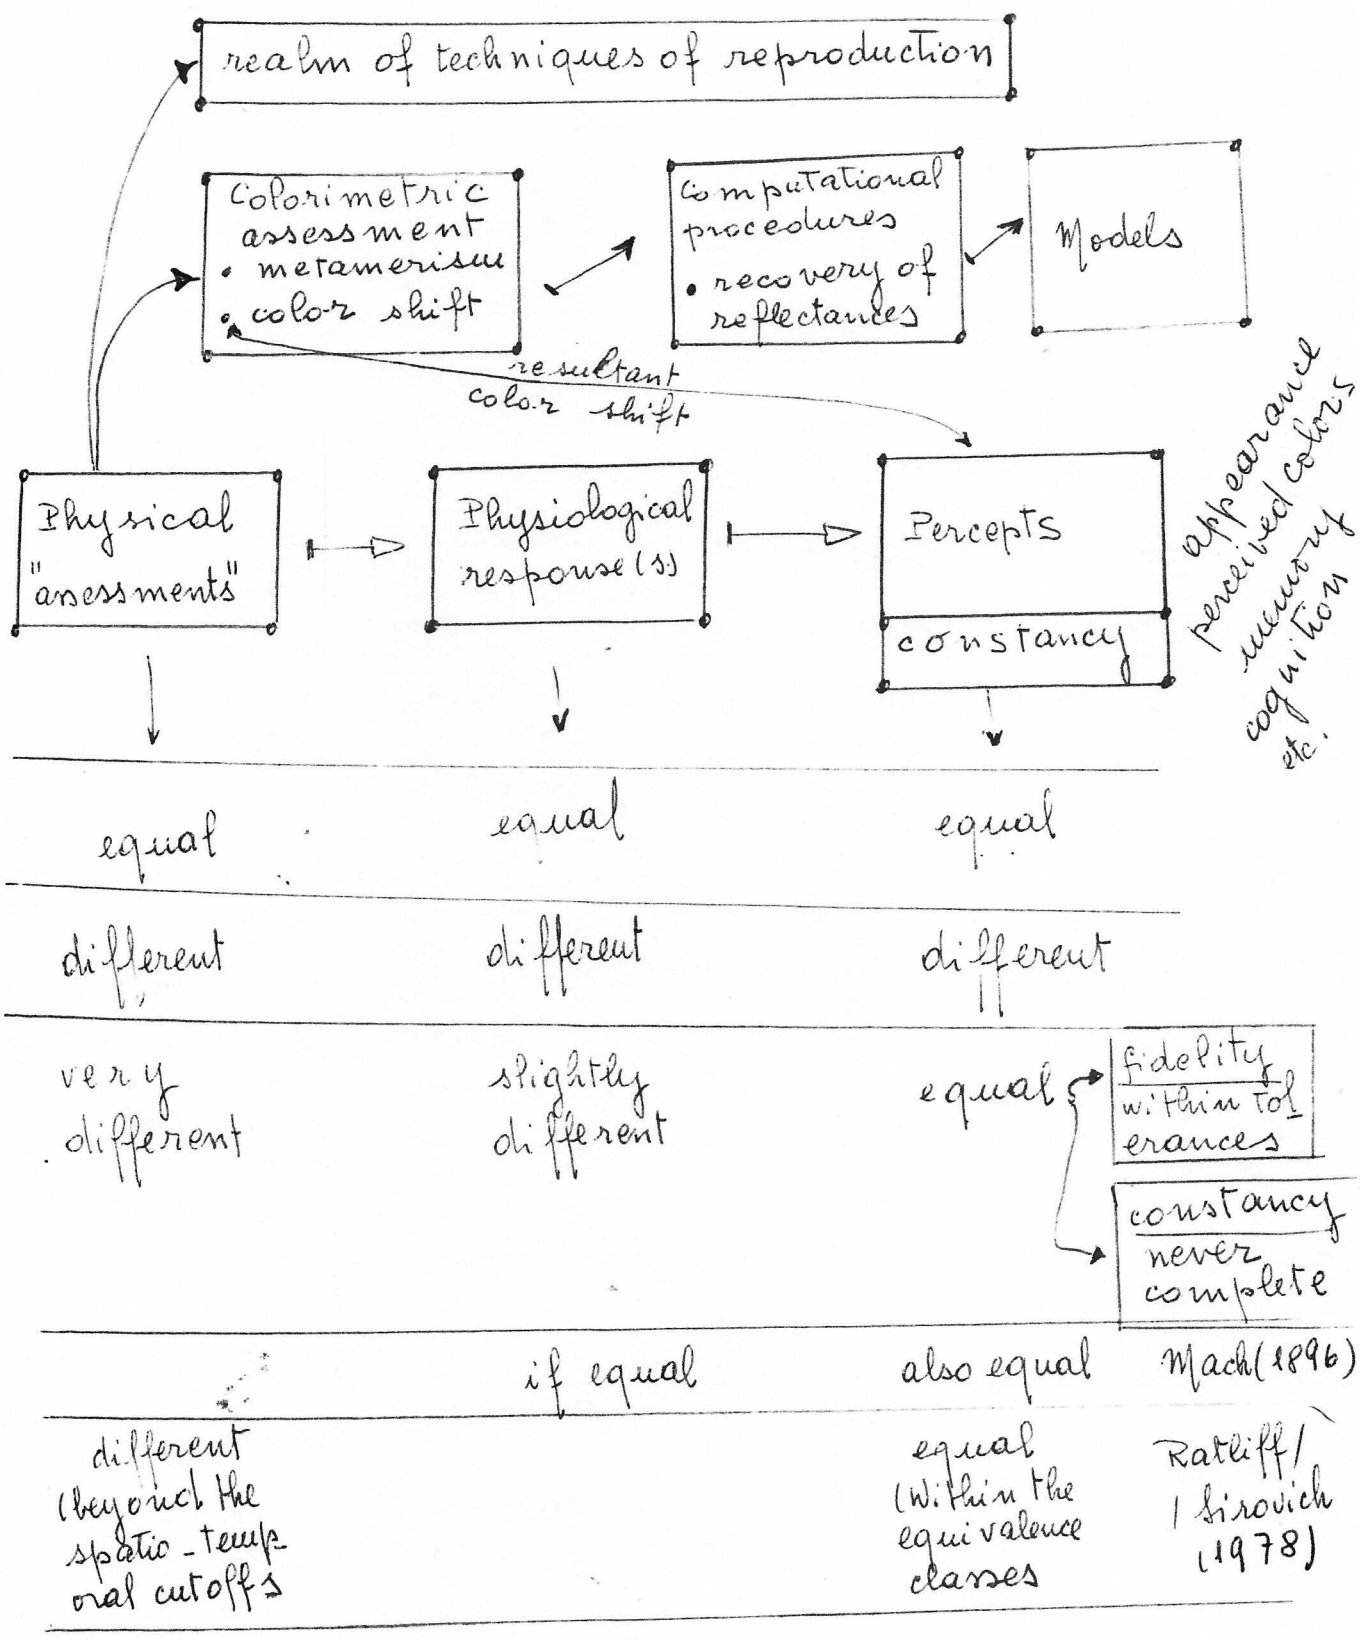 realm of techniques of reproduction
Colorimetric
assessment
• metamerism
• color shift
Computational
procedures
• recovery of
reflectances
Models
resultant
color shift
Physical
"assessments"
Physiological
response(s)
Percepts
constancy
appearance
perceived colors
memory
cognition
etc.
equal
equal
equal
different
different
different
very
different
slightly
different
equal
fidelity
within tol
erances
constancy
never
complete
if equal
also equal
Mach (1896)
different
(beyond the
spatio-temp
oral cutoffs
equal
(within the
equivalence
classes
Ratliff/
/Sirovich
(1978)